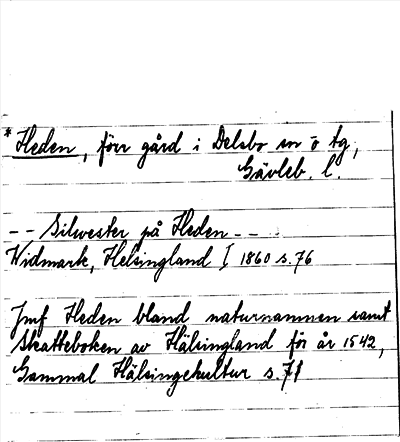 * Heden, förr gård i Delsbo sn o tg,
Gävleb. l.
-- Silwester på Heden --
Widmark, Helsingland I 1860 s. 76
Jmf Heden bland naturnamnen samt
Skatteboken av Hälsingland för år 1542,
Gammal Hälsingekultur s. 71